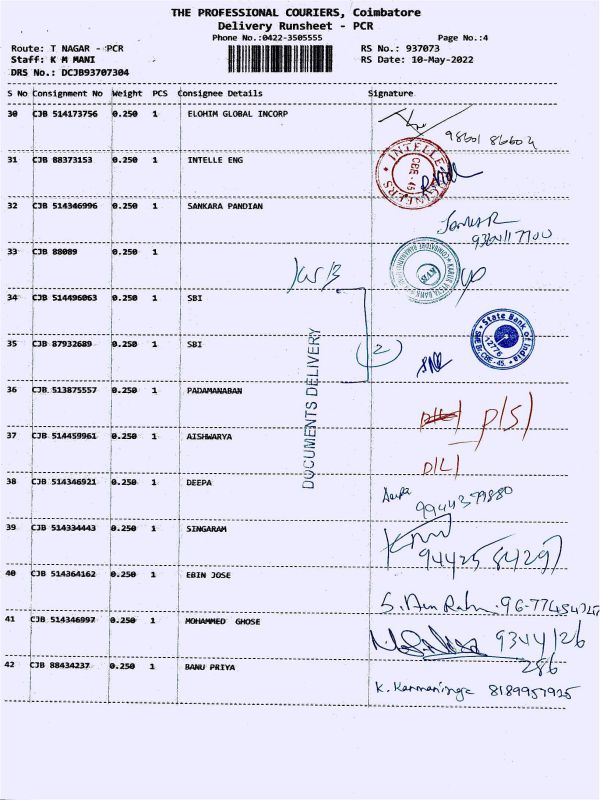 THE PROFESSIONAL COURIERS, Coimbatore
Delivery Runsheet - PCR
Phone No.:0422-3505555 Page No.:4
Route: T NAGAR - PCR RS No.: 937073
Staff: K M MANI RS Date: 10-May-2022
DRS No.: DCJB93707304
S No Consignment No Weight PCS Consignee Details Signature
30 CJB 514173756 0.250 1 ELOHIM GLOBAL INCORP
31 CJB 88373153 0.250 1 INTELLE ENG
INTELLE ENGINEERS
CBE - 45
32 CJB 514346996 0.250 1 SANKARA PANDIAN
33 CJB 88089 0.250 1
KVB
34 CJB 514496063 0.250 1 SBI
State Bank of India
12776
35 CJB 87932689 0.250 1 SBI
2
DOCUMENTS DELIVERY
36 CJB 513875557 0.250 1 PADAMANABAN
D/S/
37 CJB 514459961 0.250 1 AISHWARYA
D/L/
38 CJB 514346921 0.250 1 DEEPA
Deepa
9944379880
39 CJB 514334443 0.250 1 SINGARAM
9442584297
40 CJB 514364162 0.250 1 EBIN JOSE
41 CJB 514346997 0.250 1 MOHAMMED GHOSE
9344126
286
42 CJB 88434237 0.250 1 BANU PRIYA
8189957925